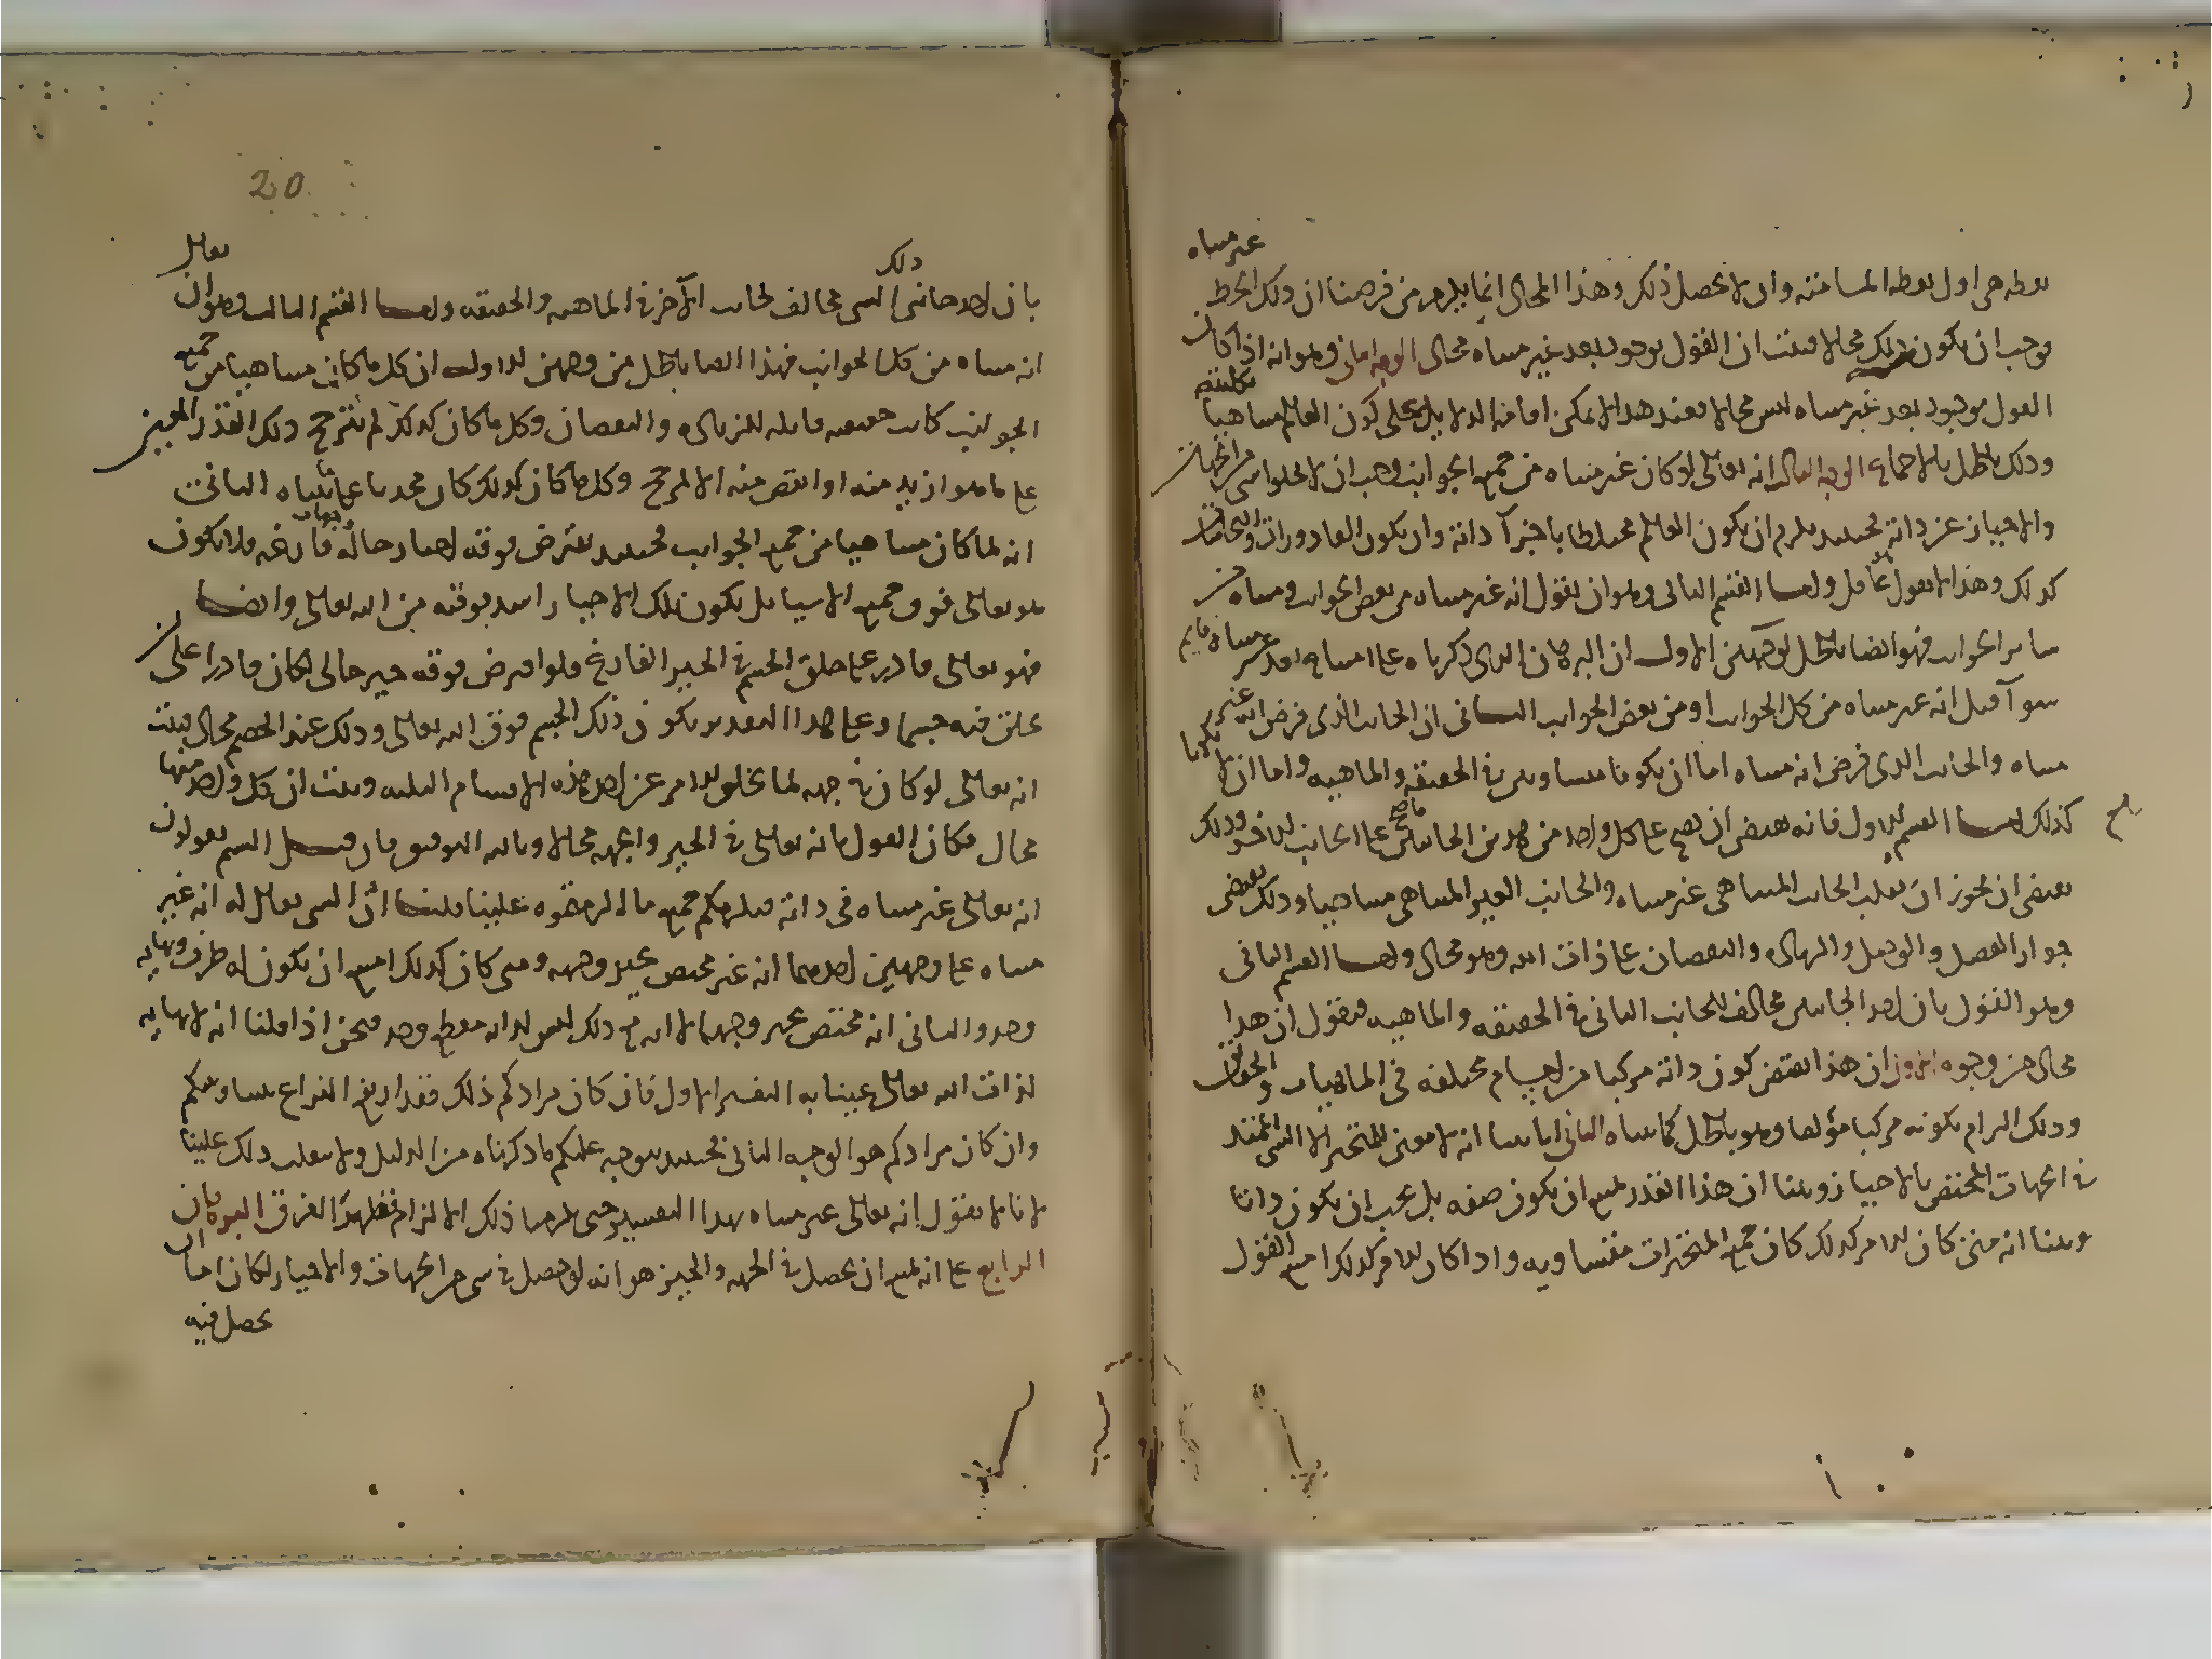 نقطه هي اول نقطه المسامته وان لا يحصل ذلك وهذا المحال انما يلزم من فرضنا ان ذلك الخط غير متناه
فوجب ان يكون ذلك محالا فثبت ان القول بوجود بعد غير متناه محال الوجه الثاني وهو انه اذا كان
القول بوجود بعد غير متناه ليس محالا فعند هذا لا يمكن اقامة الدلايل على كون العالم متناهيا بكليته
وذلك باطل بالاجماع الوجه الثالث انه تعالى لو كان غير متناه من جميع الجوانب وجب ان لا يخلوا شي من الجهات
والاحياز عن ذاته فحينئذ يلزم ان يكون العالم مختلطا باجزآ ذاته وان يكون القاذورات والنجاسات
كذلك وهذا لا يقوله عاقل واما القسم الثاني وهو ان يقول انه غير متناه من بعض الجوانب ومتناه من
ساير الجوانب فهو ايضا باطل لوجهين الاول ان البرهان الذي ذكرناه على امتناع بعد غير متناه قايم
سوآ قيل انه غير متناه من كل الجوانب او من بعض الجوانب الثاني ان الجانب الذي فرض انه غير
متناه والجانب الذي فرض انه متناه اما ان يكونا متساويين في الحقيقه والماهيه واما ان لا يكونا
كذلك اما القسم الاول فانه يقتضي ان يصح على كل واحد من هذين الجانبين ما صح على الجانب الاخر وذلك
يقتضي ان يجوز ان ينقلب الجانب المتناهي غير متناه والجانب الغير المتناهي متناهيا وذلك يقتضي
جواز الفصل والوصل والزياده والنقصان على ذات الله وهو محال واما القسم الثاني
وهو القول بان احد الجانبين مخالف للجانب الثاني في الحقيقه والماهيه فنقول ان هذا
محال من وجوه الاول ان هذا يقتضي كون ذاته مركبا من اجسام مختلفه في الماهيات والحقايق
وذلك الزام بكونه مركبا مؤلفا وهو باطل كما بيناه الثاني انا بينا انه لا معنى للمتحيز الا الشي الممتد
في الجهات المختص بالاحياز وبينا ان هذا القدر يمتنع ان يكون صفه بل يجب ان يكون ذاتا
وبينا انه متى كان الامر كذلك كان جميع المتحيزات متساويه واذا كان الامر كذلك امتنع القول
بان احد جانبي ذلك الشي مخالف لجانب الآخر في الماهيه والحقيقه واما القسم الثالث وهو ان يقال
انه متناه من كل الجوانب فهذا ايضا باطل من وجهين الاول ان كل ما كان متناهيا من جميع
الجوانب كانت حقيقته قابله للزياده والنقصان وكل ما كان كذلك لم يترجح ذلك القدر المعين
على ما هو ازيد منه او انقص منه الا لمرجح وكل ما كان كذلك كان محدثا على ما بيناه الثاني
انه لما كان متناهيا من جميع الجوانب فحينئذ يفرض فوقه احياز خاليه وجهات فارغه فلا يكون
هو تعالى فوق جميع الاشيا بل يكون تلك الاحياز اشد فوقيه من الله تعالى وايضا
فهو تعالى قادر على خلق الجسم في الحيز الفارغ فلو افترض فوقه حيز خالي لكان قادرا على ان
يخلق فيه جسما وعلى هذا التقدير يكون ذلك الجسم فوق الله تعالى وذلك عند الخصم محال فثبت
انه تعالى لو كان في جهه لما يخلو الامر عن احد هذه الاقسام الثلثه وثبت ان كل واحد منها
محال فكان القول بانه تعالى في الحيز والجهه محالا وبالله التوفيق فان قيل الستم تقولون
انه تعالى غير متناه في ذاته فيلزمكم جميع ما الزمتموه علينا قلنا ان الشي يقال له انه غير
متناه على وجهين احدهما انه غير مختص بحيز وجهه ومتى كان كذلك امتنع ان يكون له طرف ونهايه
وحد والثاني انه مختص بحيز وجهه الا انه مع ذلك ليس لذاته مقطع وحد فنحن اذا قلنا انه لا نهايه
لذات الله تعالى عنينا به التفسير الاول فان كان مرادكم ذلك فقد ارتفع النزاع بيننا وبينكم
وان كان مرادكم هو الوجه الثاني فحينئذ يتوجه عليكم ما ذكرناه من الدليل ولا ينقلب ذلك علينا
لانا لا نقول انه تعالى غير متناه بهذا التفسير حتى يلزمنا ذلك الالزام فظهر هذا الفرق البرهان
الرابع على انه يمتنع ان يحصل في الجهه والحيز هو انه لو حصل في شي من الجهات والاحياز لكان اما ان
يحصل فيه
20